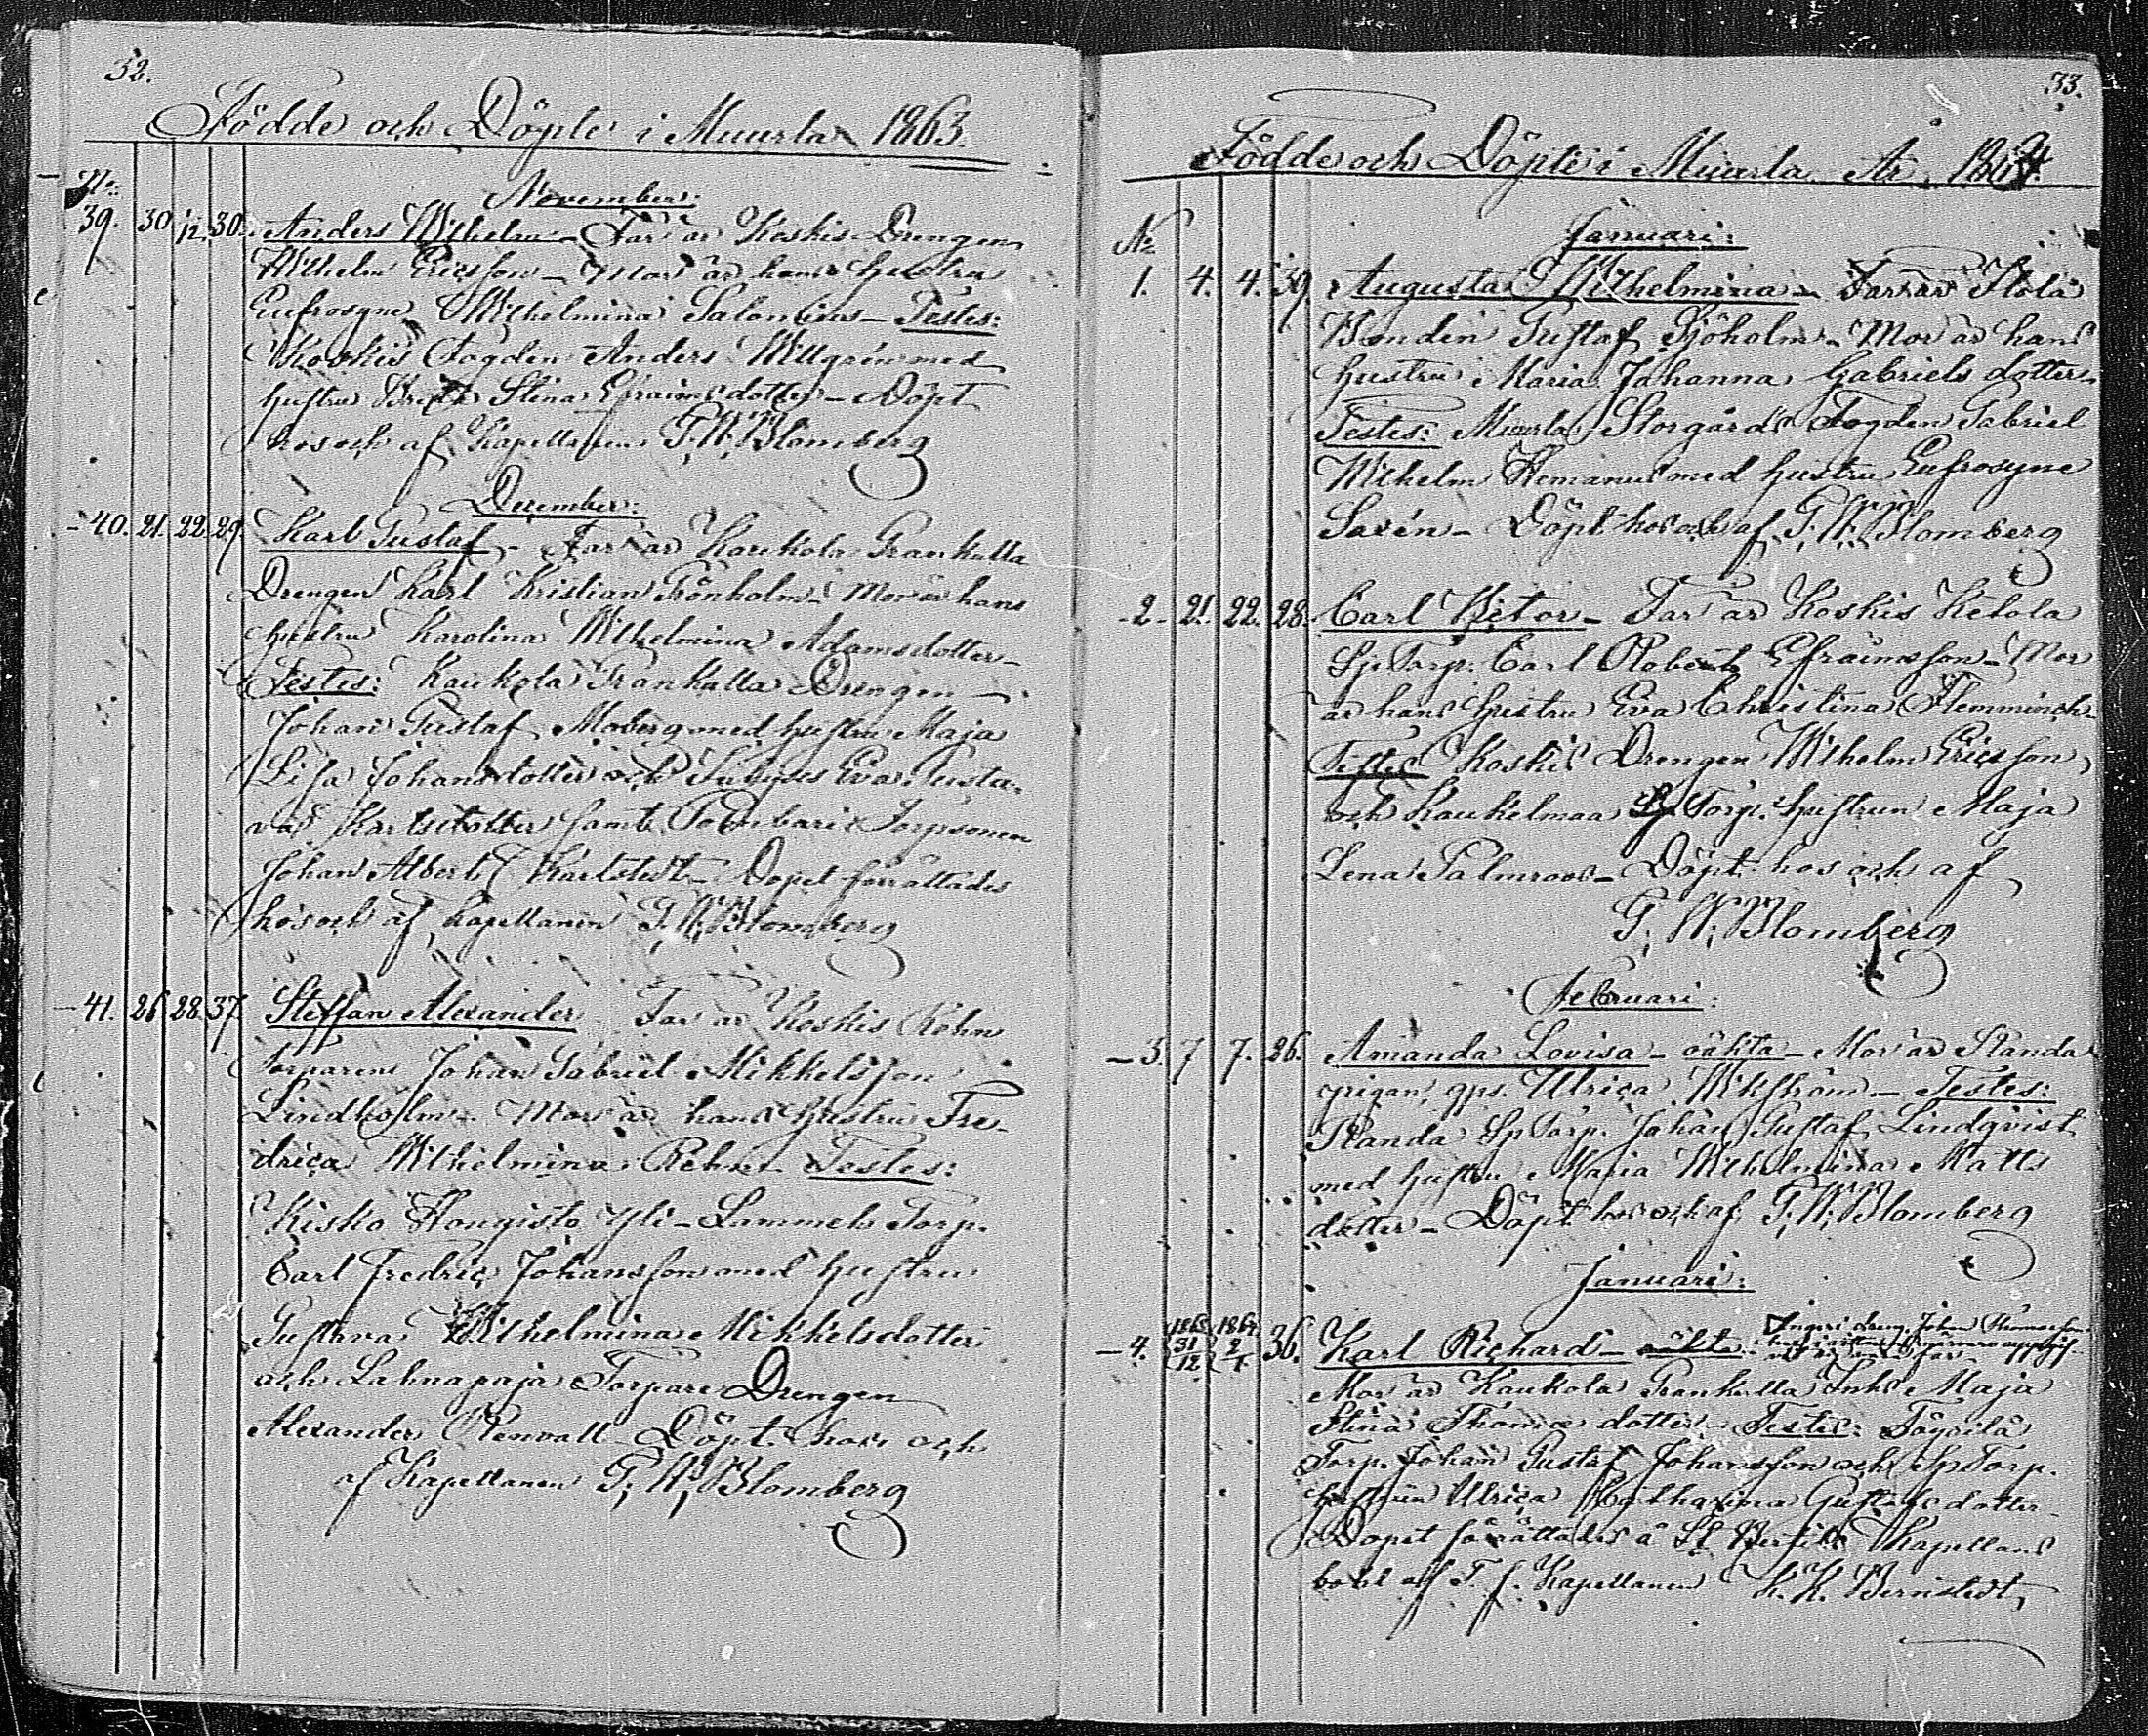 32.
Födde och Döpte i Muurla 1863.
No.
November:
39. 30 1/12. 30. Anders Wilhelm - Far är Koskis Drengen
Wilhelm Ericsson - Mor är hans hustru
Eufrosyne Wilhelmina Salonius - Testes:
Koskis Fogden Anders Willgrén med
hustru Brita Stina Efraimsdotter - Döpt
hos och af Kapellanen G. W. Blomberg
December:
- 40. 21. 22. 29. Karl Gustaf - Far är Kaukola Grankulla
Drengen Karl Kristian Grönholm - Mor är hans
hustru Karolina Wilhelmina Adamsdotter -
Testes: Kaukola Grankulla Drengen -
Johan Gustaf Moberg med hustru Maja
Lisa Johansdotter och Eva Gusta-
va Karlsdotter samt Torpsonen
Johan Albert Karlstedt - Dopet förrättades
hos och af kapellanen G. W. Blomberg
- 41. 26 28. 37. Steffan Alexander Far är Koskis Rehn
torparens Johan Gabriel Mikkelsson
Lindholm. Mor är hans hustru Fre-
drica Wilhelmina Rehn - Testes:
Kisko Hongisto Yli-Lammela Torp.
Carl Fredric Johansson med hustru
Gustava Wilhelmina Mikkelsdotter
och Lahnapaja Torpare Drengen
Alexander Renvall - Döpt hos och
af Kapellanen G. W. Blomberg
33.
Födde och Döpte i Muurla År 1864.
No
Januari:
1. 4. 4. 39. Augusta Wilhelmina - Far är Ilola
Bonden Gustaf Sjöholm - Mor är hans
hustru Maria Johanna Gabriels dotter -
Testes: Muurla Storgårds Fogden Gabriel
Wilhelm Hemanus med hustru Eufrosyne
Saxén - Döpt hos och af G. W. Blomberg
- 2 - 21. 22. 28. Carl Victor - Far är Koskis Ketola
Sp. Torp. Carl Robert Efraimsson - Mor
är hans hustru Eva Christina Flemminch -
Testes Koskis Drengen Wilhelm Ericsson
och Kaukelmaa Sp Torp. hustrun Maja
Lena Palmroos - Döpt hos och af
G. W. Blomberg
Februari:
- 3. 7 7. 26. Amanda Lovisa - oäkta - Mor är Randa
pigan, qps. Ulrica Wikström - Testes:
Randa Sp Torp. Johan Gustaf Lindqvist
med hustru Maria Wilhelmina Matts
dotter - Döpt hos och af G. W. Blomberg
Januari:
- 4. 1863 31/12 1864 2/1 36. Karl Richard - oäkta -
Mor är Kaukola Grankulla Inhs Maja
Stina Thomæ dotter - Testes:
Torp. Johan Gustaf Johansson och Sp Torp.
hustrun Ulrica Catharina Gustafs dotter -
Dopet förrättades å St Bertils Kapellans
bohl af T. f. Kapellanen K. K. Bernstedt